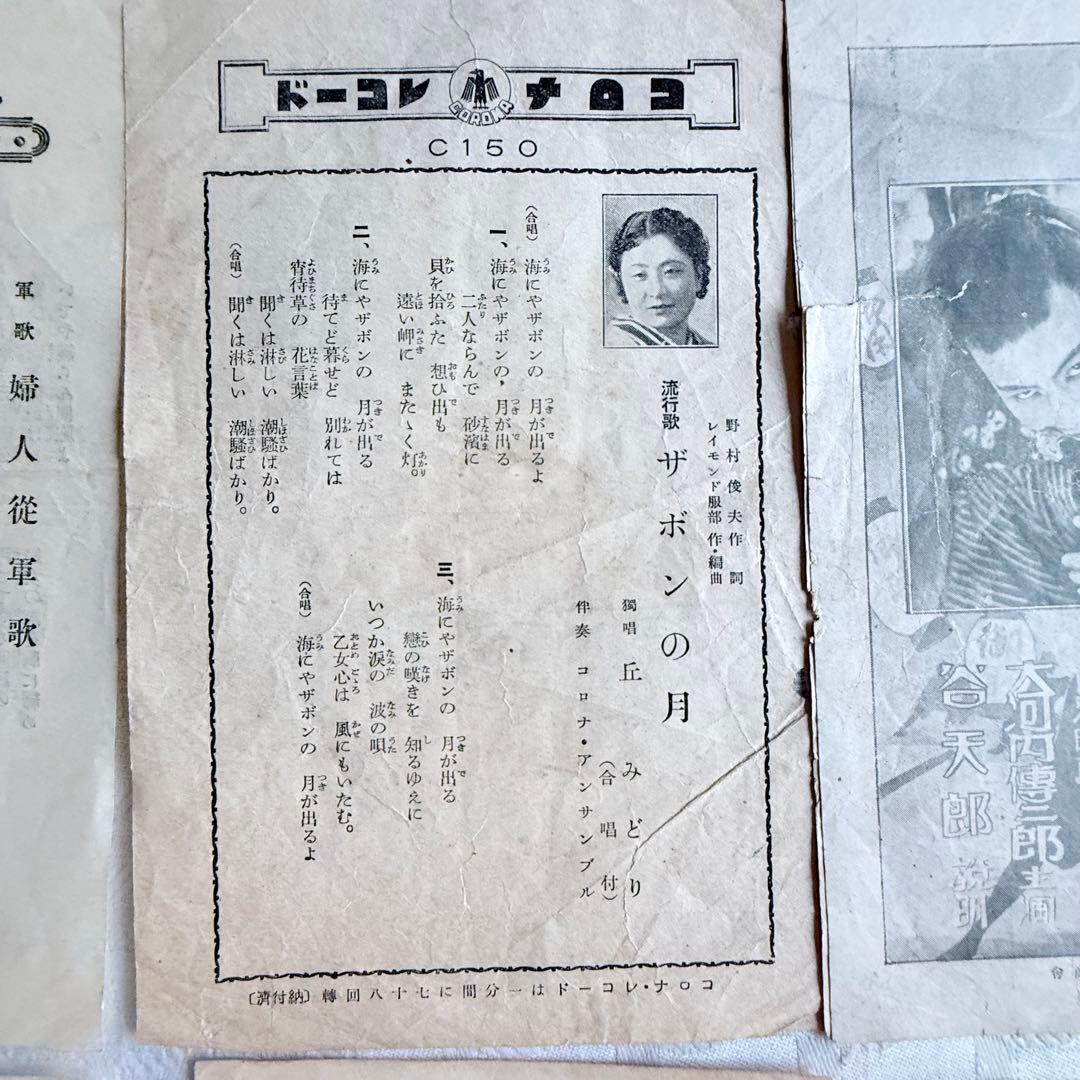 コロナレコード
CORONA
C150
野村俊夫作詞
レイモンド服部作・編曲
流行歌 ザボンの月
獨唱 丘みどり
(合唱付)
伴奏 コロナ・アンサンブル
(合唱) 海にやザボンの 月が出るよ
一、海にやザボンの、月が出る
二人ならんで 砂濱に
貝を拾ふた 想ひ出も
遠い岬に またゝく灯。
二、海にやザボンの 月が出る
待てど暮せど 別れては
宵待草の 花言葉
聞くは淋しい 潮騒ばかり。
(合唱) 聞くは淋しい 潮騒ばかり。
三、海にやザボンの 月が出る
戀の嘆きを 知るゆえに
いつか淚の 波の唄
乙女心は 風にもいたむ。
(合唱) 海にやザボンの 月が出るよ
コロナ・レコードは一分間に七十八回轉〔納付濟〕
軍歌 婦人從軍歌
大河内傳次郎主演
谷天郎 説明